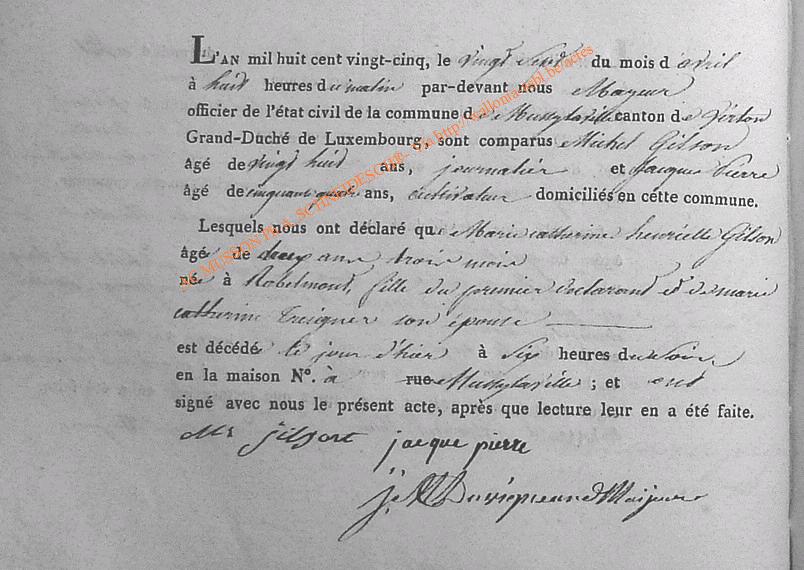 L'AN mil huit cent vingt-cinq, le vingt sept du mois d'avril
à huit heures du matin par-devant nous Mayeur
officier de l'état civil de la commune de Mussylaville canton de Virton
Grand-Duché de Luxembourg, sont comparus Michel Gilson
âgé de vingt huit ans, journalier et Jacque Pierre
âgé de cinquant quatre ans, cultivateur domiciliés en cette commune.
Lesquels nous ont déclaré que Marie catherine henriette Gilson
âgée de deux ans trois mois
née à Robelmont, fille du premier declarant et de marie
catherine son épouse
est décédé le jour d'hier à Six heures du Soir
en la maison N.° à rue Mussylaville ; et ont
signé avec nous le présent acte, après que lecture leur en a été faite.
jacque pierre
Maijeur
DE MUSSON PAR SCHNEIDESCH R. via http://wallonia.asbl.be/actes